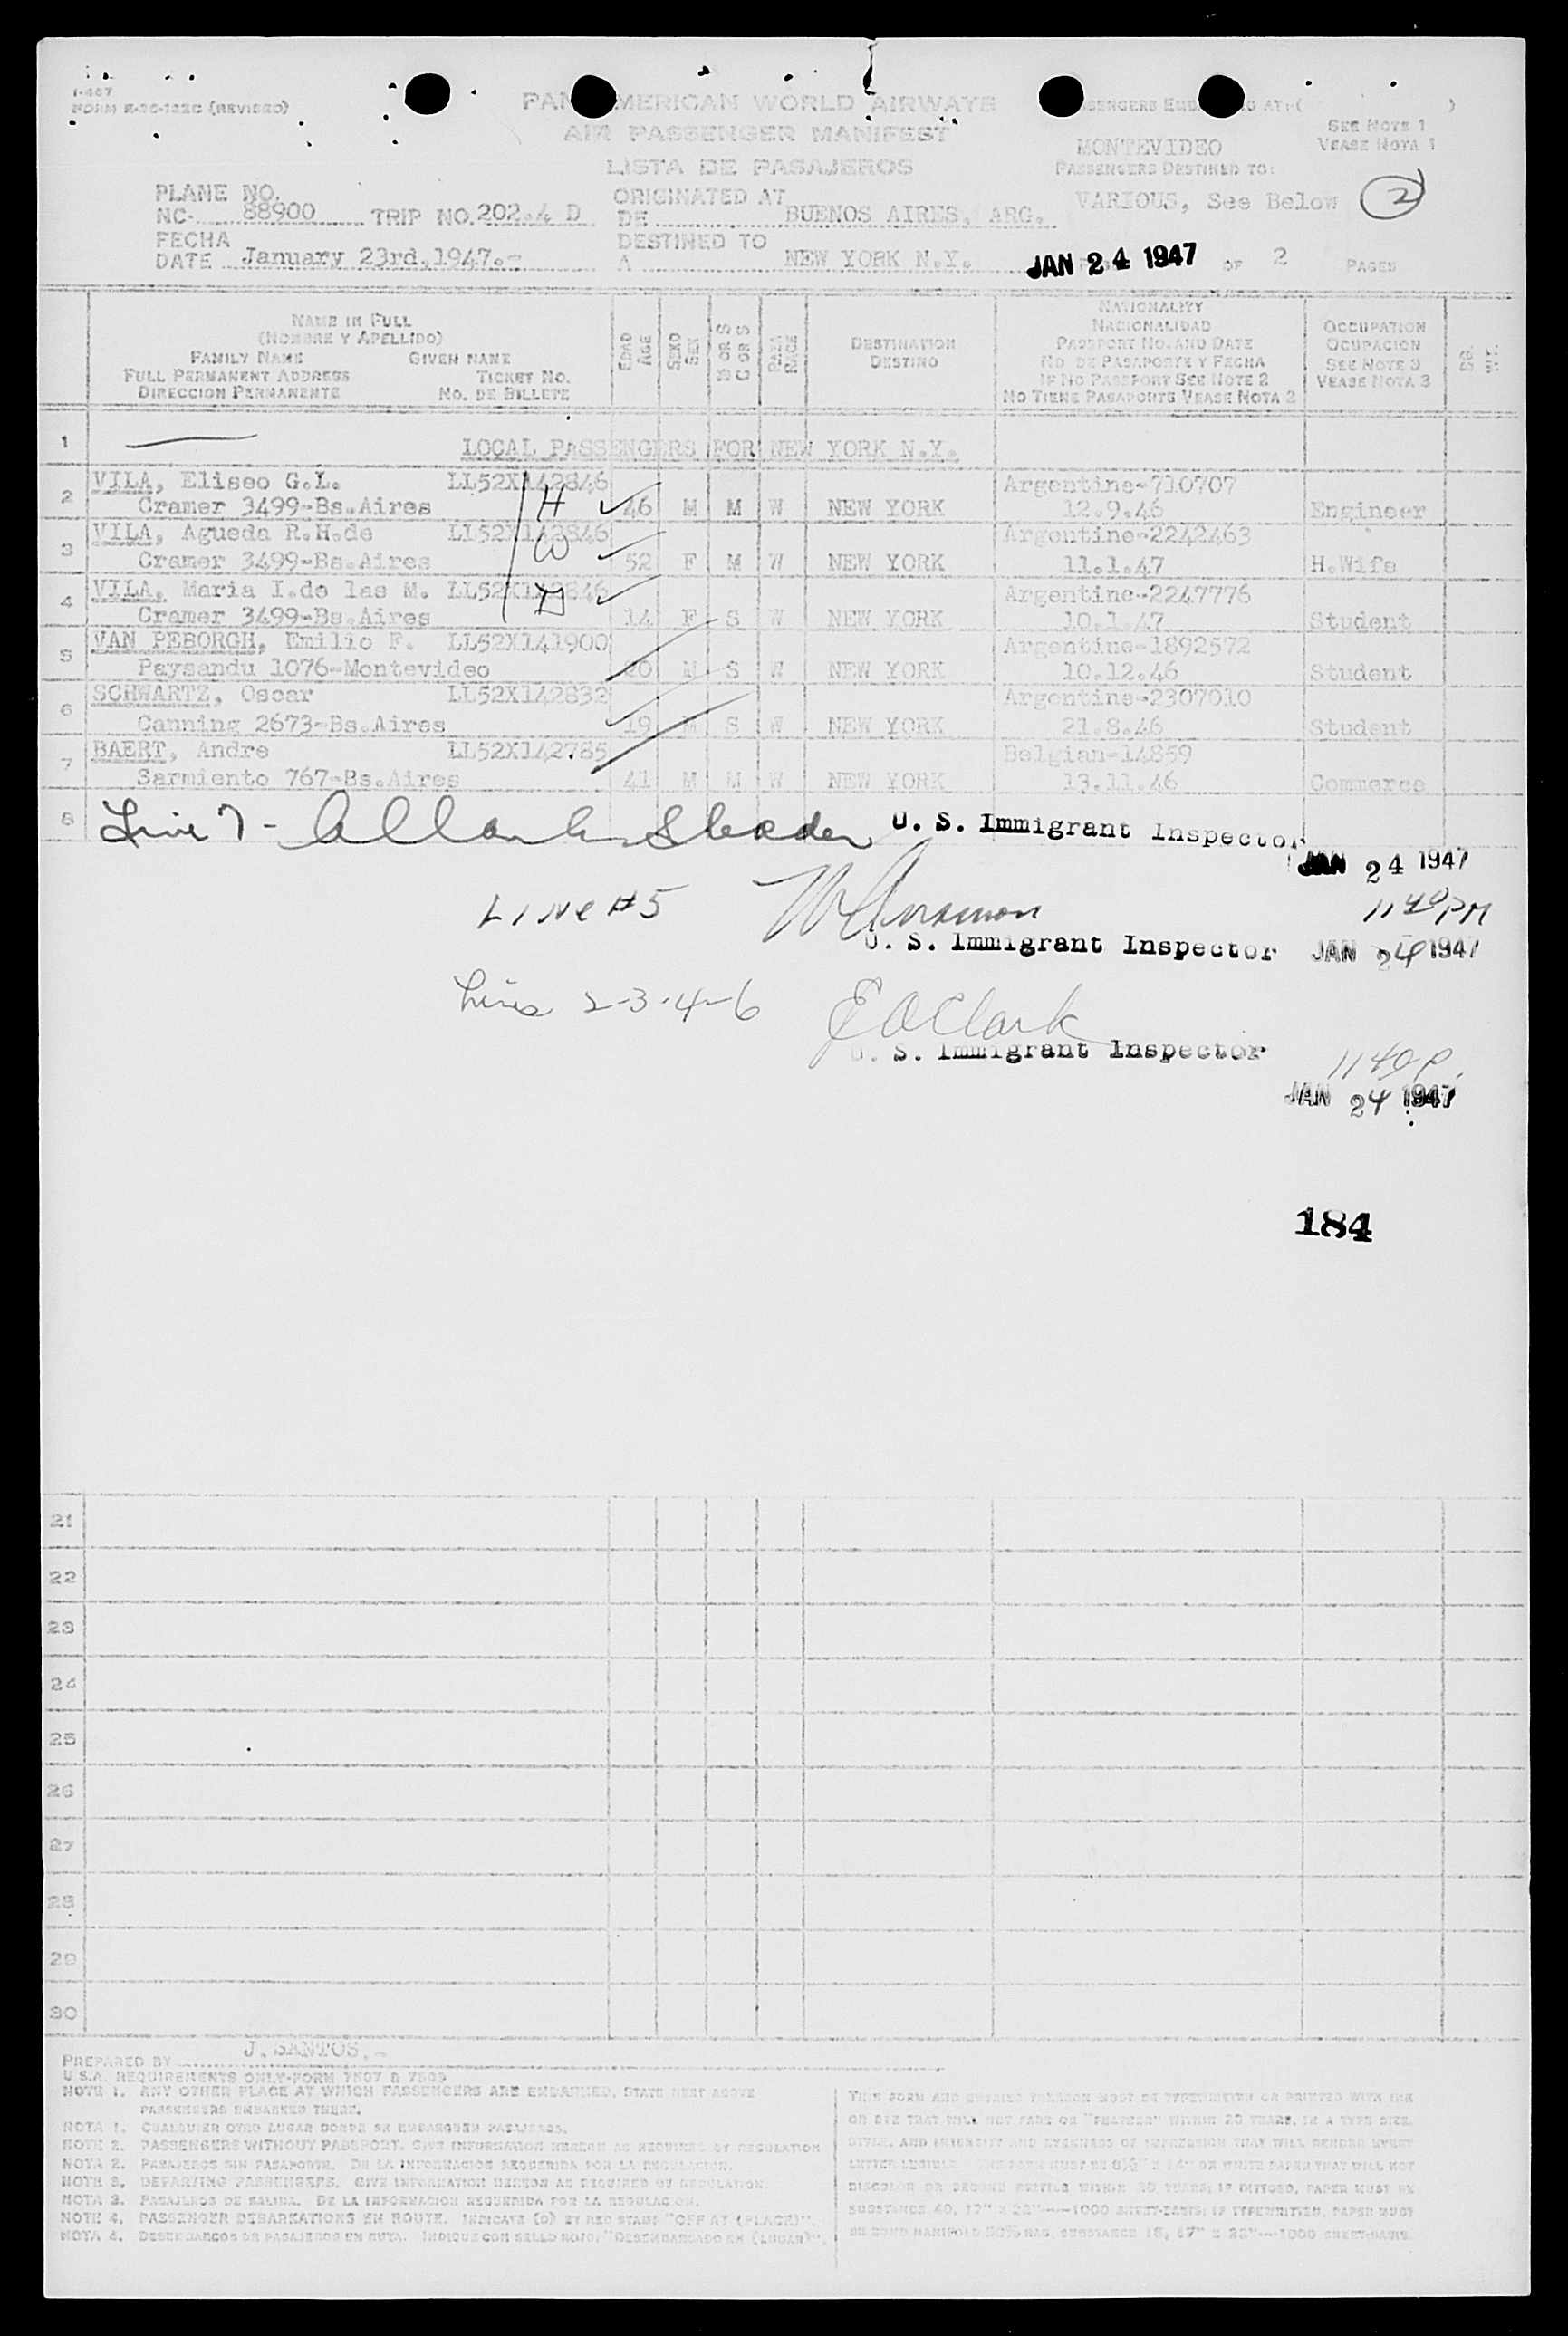 I-467
FORM E-36-122C (REVISED)
PAN AMERICAN WORLD AIRWAYS
AIR PASSENGER MANIFEST
LISTA DE PASAJEROS
MONTEVIDEO
SEE NOTE 1
VEASE NOTA 1
PASSENGERS DESTINED TO:
VARIOUS, See Below 2
PLANE NO.
NC- 88900 TRIP NO. 202.4 D
ORIGINATED AT
DE BUENOS AIRES, ARG.
FECHA
DATE January 23rd, 1947.-
DESTINED TO
A NEW YORK N.Y.
JAN 24 1947 OF 2 PAGES
NAME IN FULL
(NOMBRE Y APELLIDO)
FAMILY NAME GIVEN NAME
FULL PERMANENT ADDRESS TICKET NO.
DIRECCION PERMANENTE NO. DE BILLETE
EDAD
AGE
SEXO
SEX
M OR S
C OR S
RAZA
RACE
DESTINATION
DESTINO
NATIONALITY
NACIONALIDAD
PASSPORT NO. AND DATE
NO. DE PASAPORTE Y FECHA
IF NO PASSPORT SEE NOTE 2
NO TIENE PASAPORTE VEASE NOTA 2
OCCUPATION
OCUPACION
SEE NOTE 3
VEASE NOTA 3
1 LOCAL PASSENGERS FOR NEW YORK N.Y.
2 VILA, Eliseo G.L. LL52X142846 Argentine-710707
Cramer 3499-Bs.Aires H 46 M M W NEW YORK 12.9.46 Engineer
3 VILA, Agueda R.H.de LL52X142846 Argentine-2242463
Cramer 3499-Bs.Aires W 52 F M W NEW YORK 11.1.47 H.Wife
4 VILA, Maria I.de las M. LL52X142846 Argentine-2247776
Cramer 3499-Bs.Aires D 14 F S W NEW YORK 10.1.47 Student
5 VAN PEBORGH, Emilio F. LL52X141900 Argentine-1892572
Paysandu 1076-Montevideo 20 M S W NEW YORK 10.12.46 Student
6 SCHWARTZ, Oscar LL52X142832 Argentine-2307010
Canning 2673-Bs.Aires 19 M S W NEW YORK 21.8.46 Student
7 BAERT, Andre LL52X142785 Belgian-14859
Sarmiento 767-Bs.Aires 41 M M W NEW YORK 13.11.46 Commerce
8 Line 7 - U. S. Immigrant Inspector
JAN 24 1947
LINE #5 1140 PM
U. S. Immigrant Inspector JAN 24 1947
Lines 2-3-4-6 E O Clark
U. S. Immigrant Inspector 1140 P.
JAN 24 1947
184
21
22
23
24
25
26
27
28
29
30
PREPARED BY J. SANTOS.-
U.S.A. REQUIREMENTS ONLY-FORM 7507 & 7509
NOTE 1. ANY OTHER PLACE AT WHICH PASSENGERS ARE EMBARKED, STATE NEXT ABOVE
PASSENGERS EMBARKED THERE.
NOTA 1. CUALQUIER OTRO LUGAR DONDE SE EMBARQUEN PASAJEROS.
NOTE 2. PASSENGERS WITHOUT PASSPORT. GIVE INFORMATION HEREON AS REQUIRED BY REGULATION
NOTA 2. PASAJEROS SIN PASAPORTE. DE LA INFORMACION REQUERIDA POR LA REGULACION.
NOTE 3. DEPARTING PASSENGERS. GIVE INFORMATION HEREON AS REQUIRED BY REGULATION.
NOTA 3. PASAJEROS DE SALIDA. DE LA INFORMACION REQUERIDA POR LA REGULACION.
NOTE 4. PASSENGER DEBARKATIONS EN ROUTE. INDICATE (D) BY RED STAMP "OFF AT (PLACE)".
NOTA 4. DESEMBARCOS DE PASAJEROS EN RUTA. INDIQUE CON SELLO ROJO: "DESEMBARCADO EN (LUGAR)".
THIS FORM AND ENTRIES THEREON MUST BE TYPEWRITTEN OR PRINTED WITH INK
OR DYE THAT WILL NOT FADE OR "FEATHER" WITHIN 20 YEARS, IN A TYPE SIZE,
STYLE, AND INTENSITY AND EVENNESS OF IMPRESSION THAT WILL RENDER EVERY